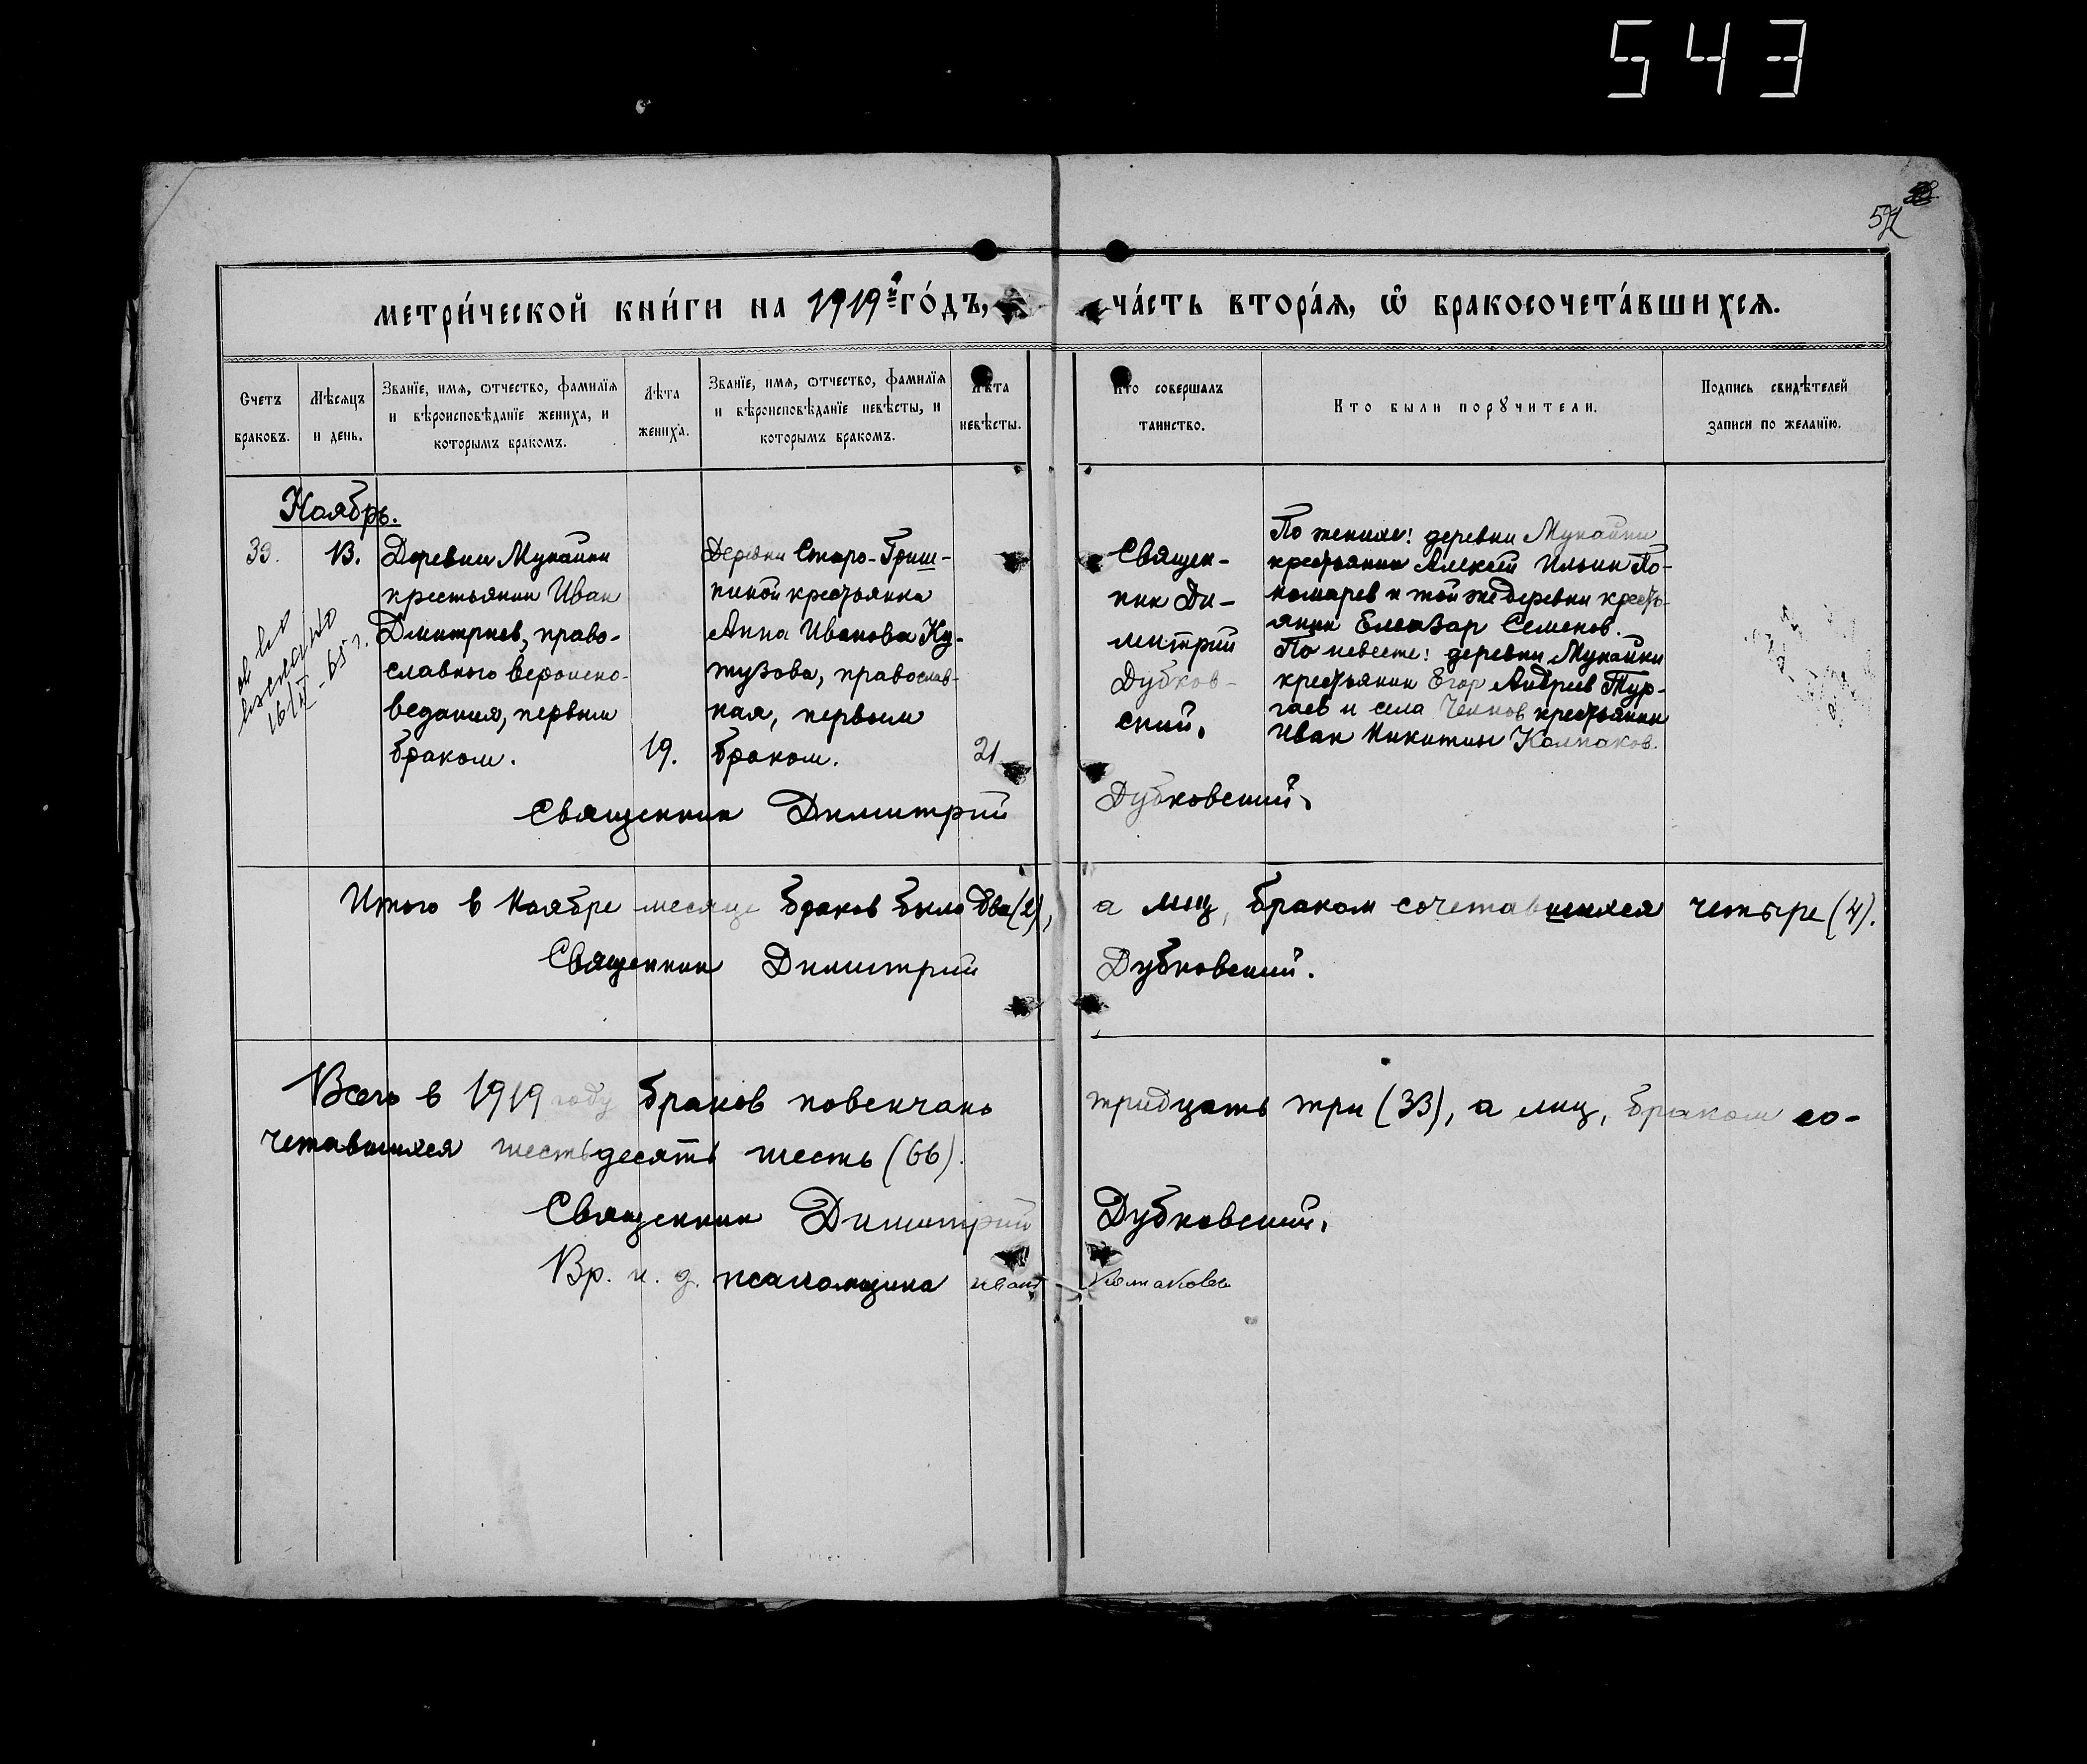 543
572
метри́ческой кни́ги на 1919й го́дъ,
ча́сть втора́я, ѡ҆ бракосочета́вшихся.
Счетъ браковъ.
Мѣсяцъ и день.
Званїе, имя, ѡтчество, фамилїя и вѣроисповѣданїе жениха, и которымъ бракомъ.
Лѣта жениха.
Званїе, имя, ѡтчество, фамилїя и вѣроисповѣданїе невѣсты, и которымъ бракомъ.
Лѣта невѣсты.
Кто совершалъ таинство.
Кто были порꙋчители.
Подпись свидѣтелей записи по желанїю.
Ноябрь.
33.
13.
Деревни Мунайки
крестьянин Иван
Дмитриев, право-
славного вероиспо-
ведания, первым
браком.
19.
Деревни Старо-Гриш-
киной крестьянка
Анна Иванова Ку-
тузова, православ-
ная, первым
браком.
21
Священ-
ник Ди-
митрий
Дубков-
ский.
По женихе: деревни Мунайки
крестьянин Алексей Ильин По-
номарев и той же деревни кресть-
янин Елеазар Семенов.
По невесте: деревни Мунайки
крестьянин Егор Андреев Тур-
гаев и села крестьянин
Иван Никитин Колмаков.
16/IX-65 г.
Священник Димитрий Дубковский.
Итого в Ноябре месяце браков было два (2), а лиц, браком сочетавшихся четыре (4).
Священник Димитрий Дубковский.
Всего в 1919 году браков повенчано тридцать три (33), а лиц, браком со-
четавшихся шестьдесять шесть (66).
Священник Димитрий Дубковский.
Вр. и. д. псаломщика Иван Колмаков